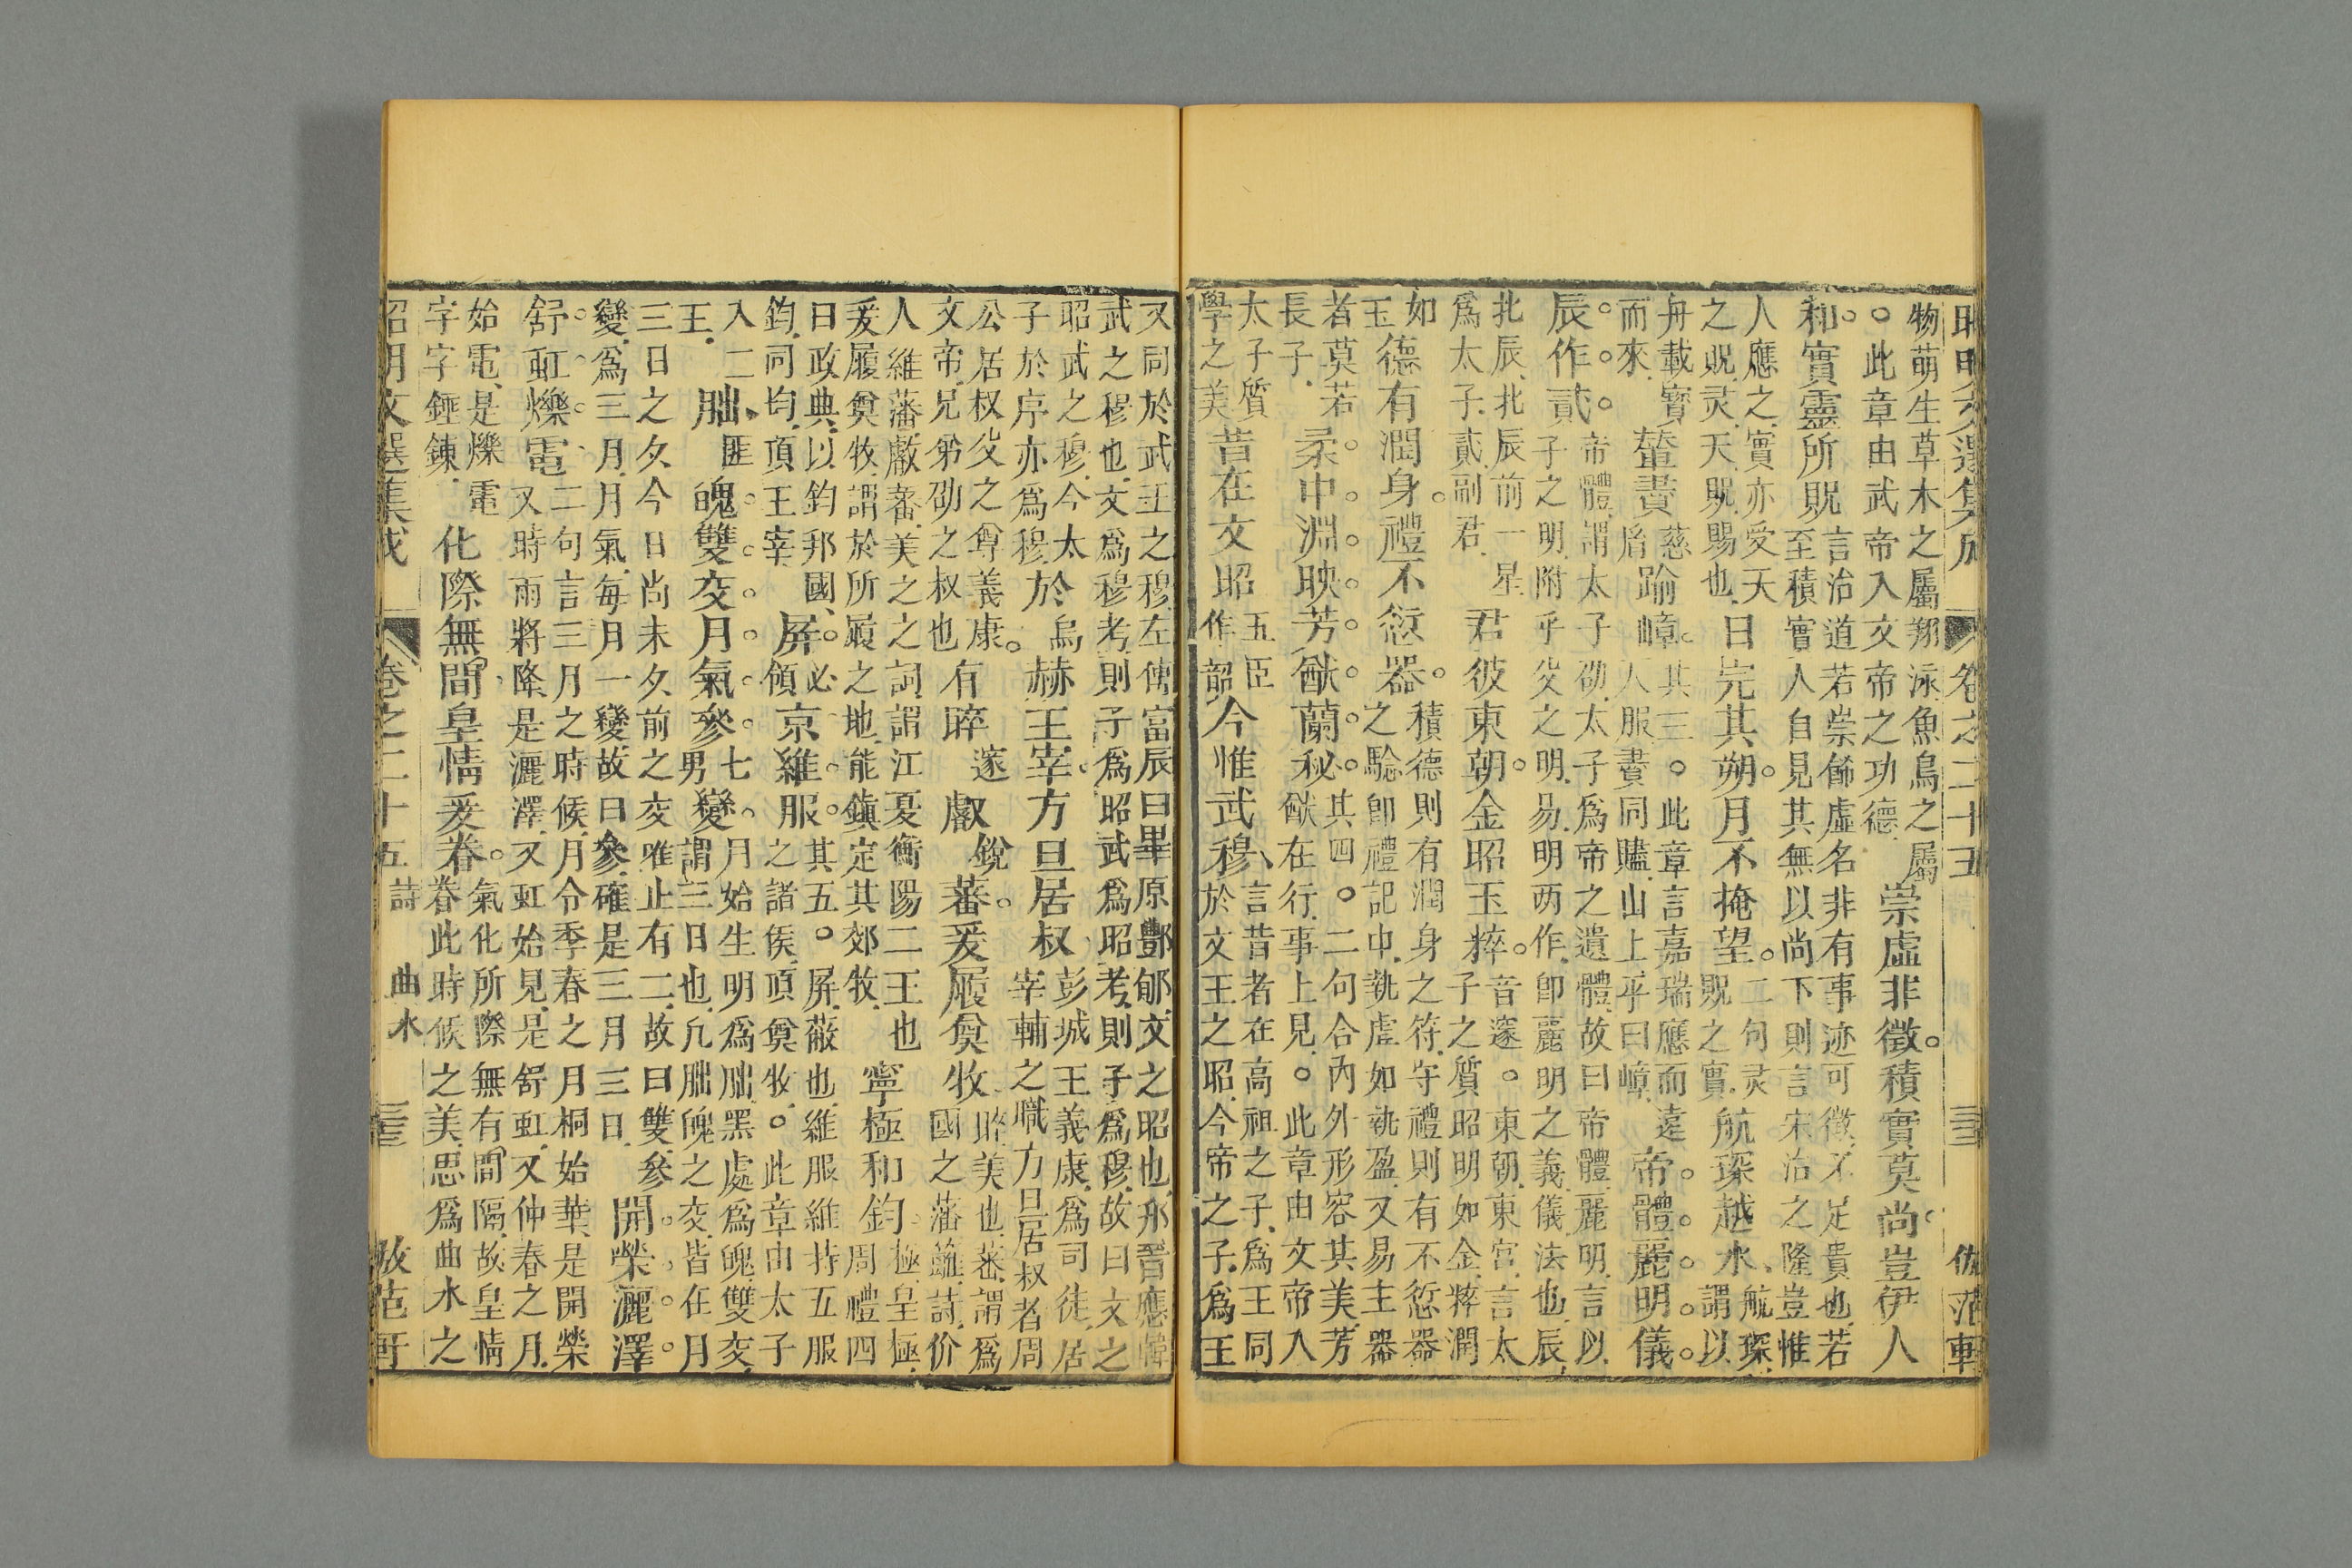 昭明文選集成 卷之二十五 三三 倣范軒
物萌生草木之屬翔泳魚鳥之屬
○此章由武帝入文帝之功德
崇虛非徵積實莫尚豈伊人
和實靈所貺
言治道若崇飾虛名非有事迹可徵不足貴也若
至積實人自見其無以尚下則言宋治之隆豈惟
人應之實亦受天
之貺灵天貺賜也
日完其朔月不掩望
二句灵
貺之實
航琛越水
航琛
謂以
舟載寶
而來
輦賮
慈
胤
踰嶂
其三○此章言嘉瑞應而遠
人服賮同贐山上平曰嶂
帝體麗明儀
辰作貳
帝體謂太子劭太子爲帝之遺體故曰帝體麗明言以
子之明附乎父之明易明两作卽麗明之義儀法也辰
北辰北辰前一星
爲太子貳副君
君彼東朝金昭玉粹
音邃○東朝東宮言太
子之質昭明如金粹潤
如
玉
德有潤身禮不愆器
積德則有潤身之符守禮則有不愆器
之驗卽禮記中執虛如執盈又易主器
者莫若
長子
柔中淵映芳猷蘭秘
其四○二句合內外形容其美芳
猷在行事上見○此章由文帝入
太子質
學之美
昔在文昭
五臣
作韶
今惟武穆
言昔者在高祖之子爲王同
於文王之昭今帝之子爲王
又同於武王之穆左傳富辰曰畢原酆郇文之昭也邢晉應韓
武之穆也文爲穆考則子爲昭武爲昭考則子爲穆故曰文之
昭武之穆今太
子於序亦爲穆
於
烏
赫王宰方旦居叔
彭城王義康爲司徒居
宰輔之職方旦居叔者周
公居叔父之尊義康
文帝兄第劭之叔也
有睟
邃
叡
銳
蕃爰履奠牧
睟美也蕃謂爲
國之藩籬詩价
人維藩叡蕃美之之詞謂江夏衡陽二王也
爰履奠牧謂於所履之地能鎮定其郊牧
寧極和鈞
極皇極
周禮四
曰政典以鈞邦國
鈞同均頂王宰
屛
必
領
京維服
其五○屛蔽也維服維持五服
之諸侯頂奠牧○此章由太子
入二
王
朏
匪
魄雙交月氣參
七
男
變
月始生明爲朏黑處爲魄雙交
謂三日也凡朏魄之交皆在月
三日之夕今日尚未夕前之交唯止有二故曰雙參
變爲三月月氣每月一變故曰參確是三月三日
開榮灑澤
舒虹爍電
二句言三月之時候月令季春之月桐始華是開榮
又時雨將降是灑澤又虹始見是舒虹又仲春之月
始電是爍電
字字錘鍊
化際無間皇情爰眷
氣化所際無有間隔故皇情
眷此時候之美思爲曲水之
昭明文選集成 卷之二十五 詩 曲水 三三 倣范軒